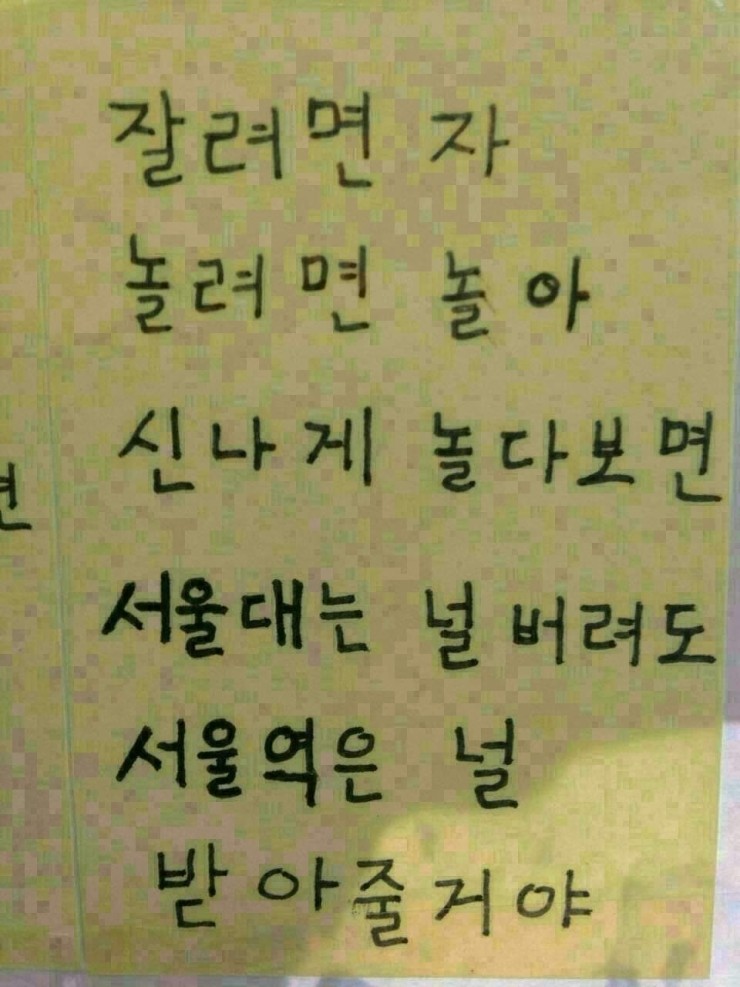 잘려면 자
놀려면 놀아
신나게 놀다보면
서울대는 널 버려도
서울역은 널
받아줄거야